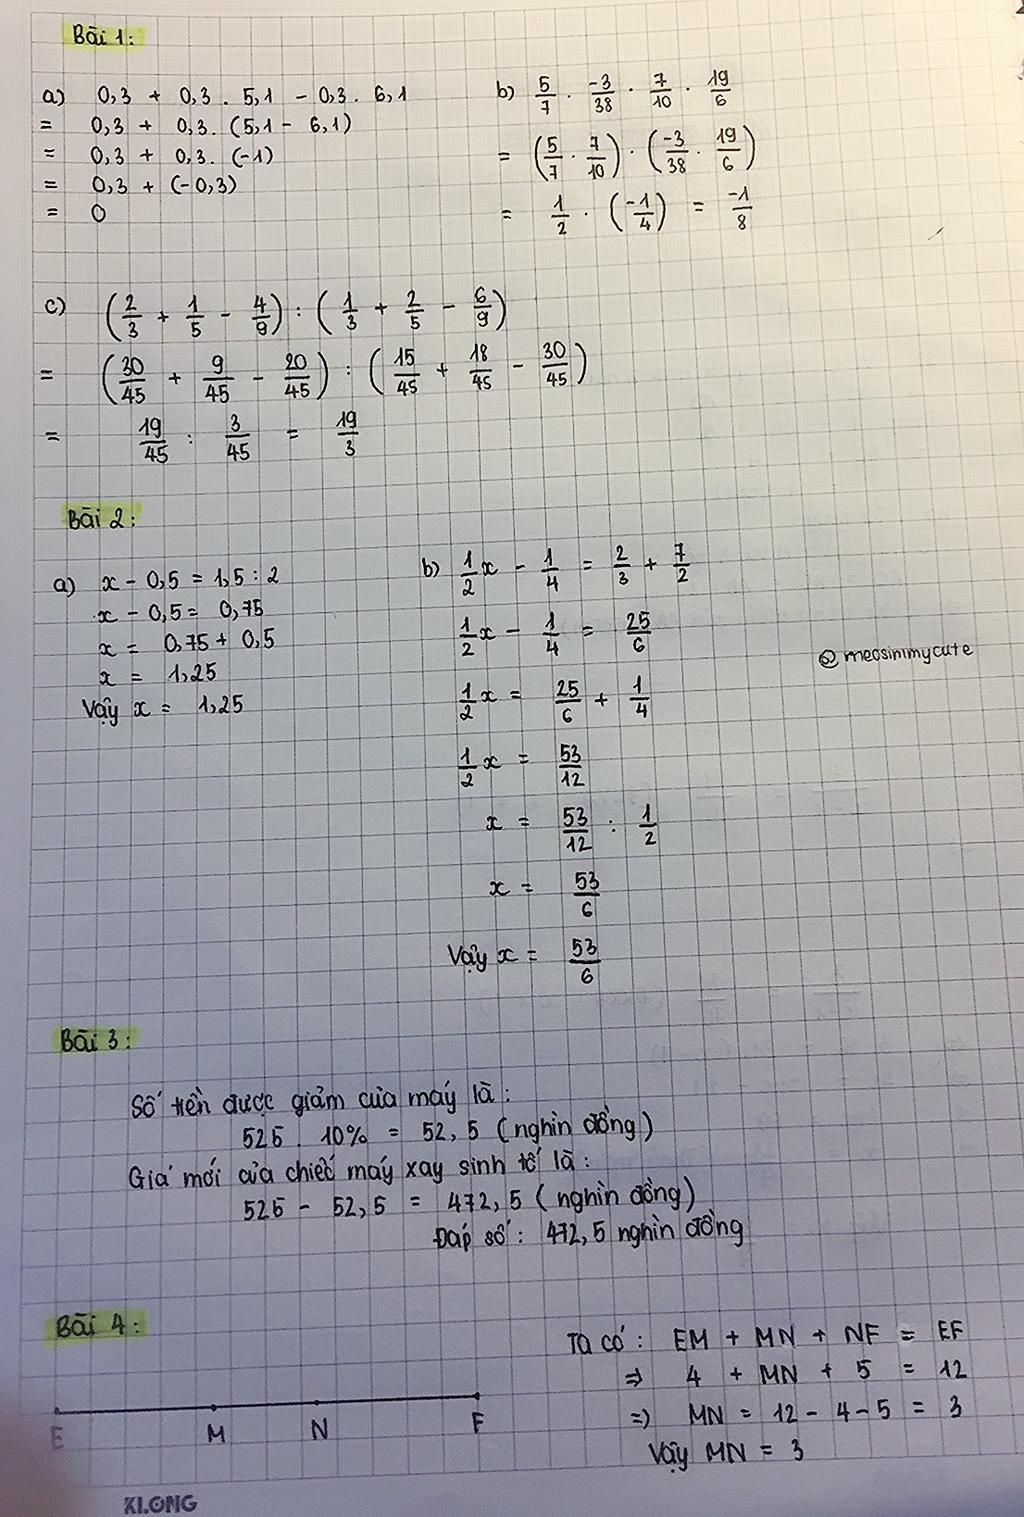 Bài 1:
a) 0,3 + 0,3 . 5,1 - 0,3 . 6,1
= 0,3 + 0,3. (5,1 - 6,1)
= 0,3 + 0,3. (-1)
= 0,3 + (-0,3)
= 0
b) 5/7 . -3/38 . 7/10 . 19/6
= (5/7 . 7/10) . (-3/38 . 19/6)
= 1/2 . (-1/4) = -1/8
c) (2/3 + 1/5 - 4/9) : (1/3 + 2/5 - 6/9)
= (30/45 + 9/45 - 20/45) : (15/45 + 18/45 - 30/45)
= 19/45 : 3/45 = 19/3
Bài 2:
a) x - 0,5 = 1,5 : 2
x - 0,5 = 0,75
x = 0,75 + 0,5
x = 1,25
Vậy x = 1,25
b) 1/2 x - 1/4 = 2/3 + 7/2
1/2 x - 1/4 = 25/6
1/2 x = 25/6 + 1/4
1/2 x = 53/12
x = 53/12 : 1/2
x = 53/6
Vậy x = 53/6
@meosinimycute
Bài 3:
Số tiền được giảm của máy là:
525 . 10% = 52,5 (nghìn đồng)
Giá mới của chiếc máy xay sinh tố là:
525 - 52,5 = 472,5 (nghìn đồng)
Đáp số: 472,5 nghìn đồng
Bài 4:
E M N F
Ta có: EM + MN + NF = EF
⇒ 4 + MN + 5 = 12
⇒ MN = 12 - 4 - 5 = 3
Vậy MN = 3
KLONG